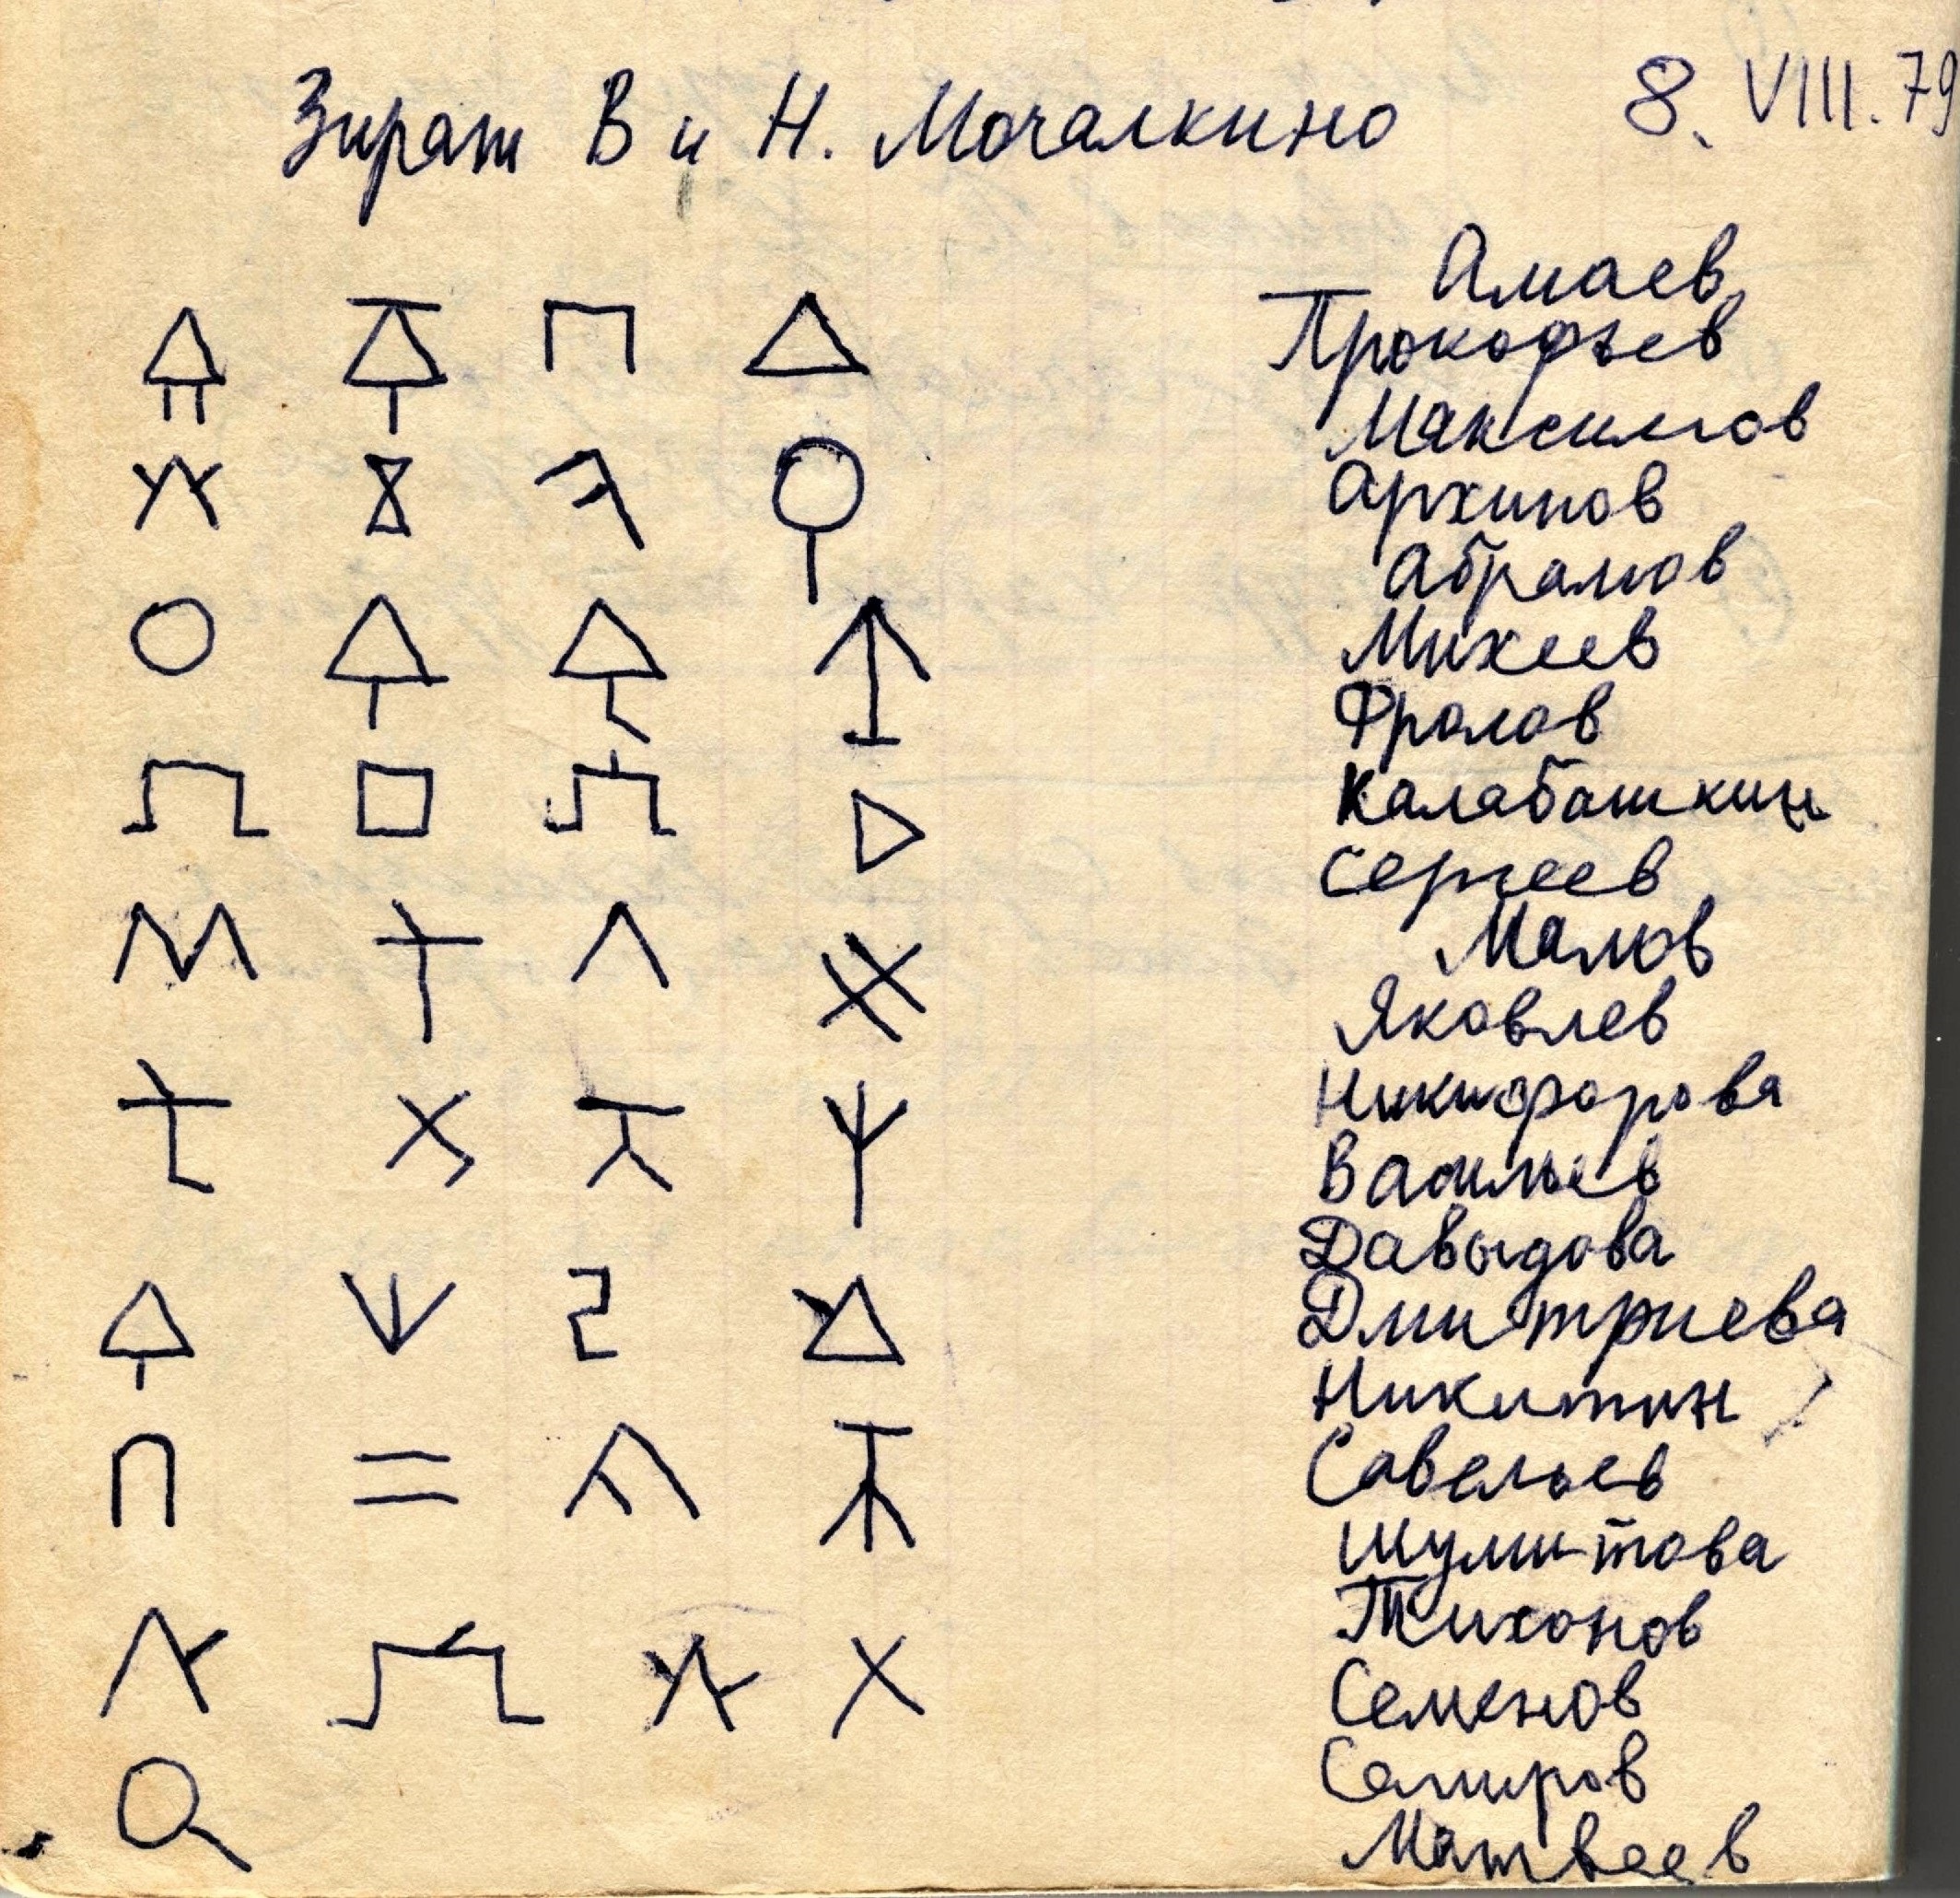 Зират В и Н. Мочалкино 8. VIII. 79
Амаев
Прокофьев
Максимов
Архипов
Абрамов
Михеев
Фролов
Калабашкин
Сергеев
Малов
Яковлев
Никифорова
Васильев
Давыдова
Дмитриева
Никитин
Савельев
Шумитова
Тихонов
Семенов
Самиров
Матвеев